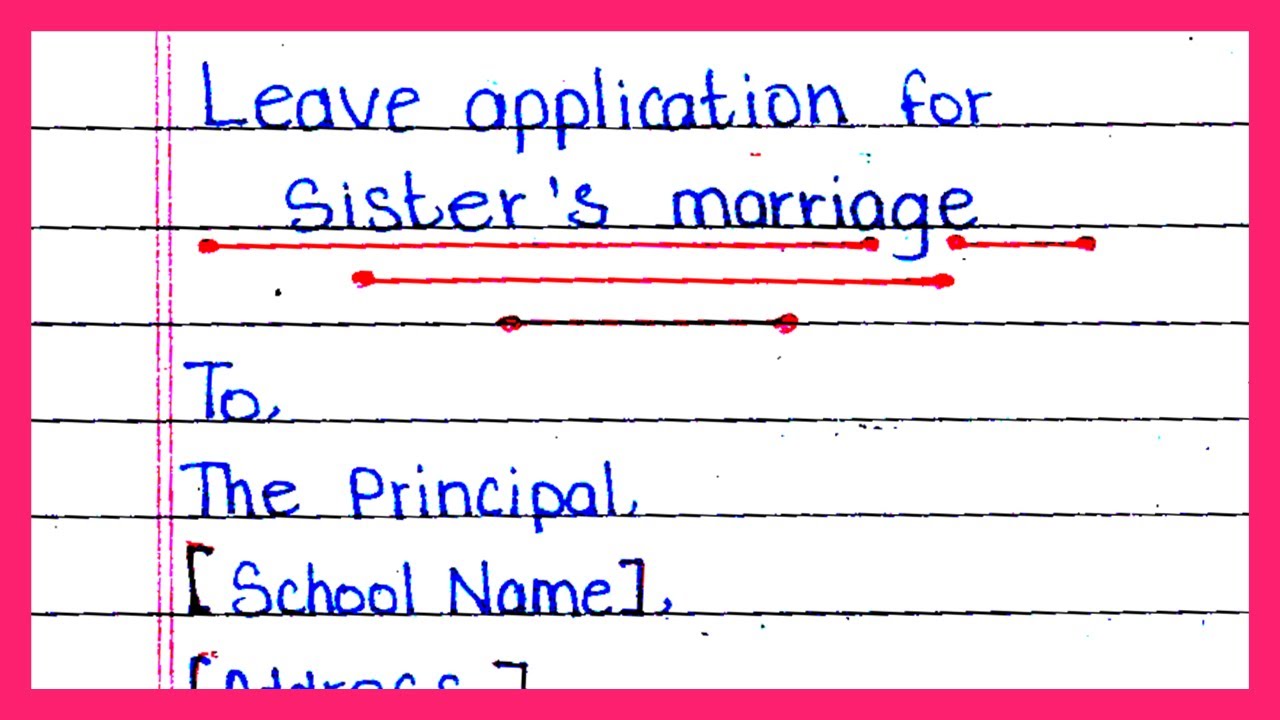 Leave application for
Sister's marriage
To,
The Principal,
[School Name],
[Address]